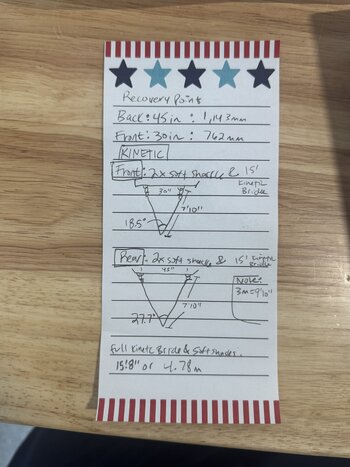 Recovery Points
Back: 45in : 1,143mm
Front: 30in : 762mm
KINETIC
Front: 2x soft shackle & 15' Kinetic Bridle
30"
7'10"
18.5°
Rear: 2x soft shackle & 15' Kinetic Bridle
45"
Note:
3m=9'10"
7'10"
27.7°
Full Kinetic Bridle & Soft Shackles.
15'8" or 4.78m